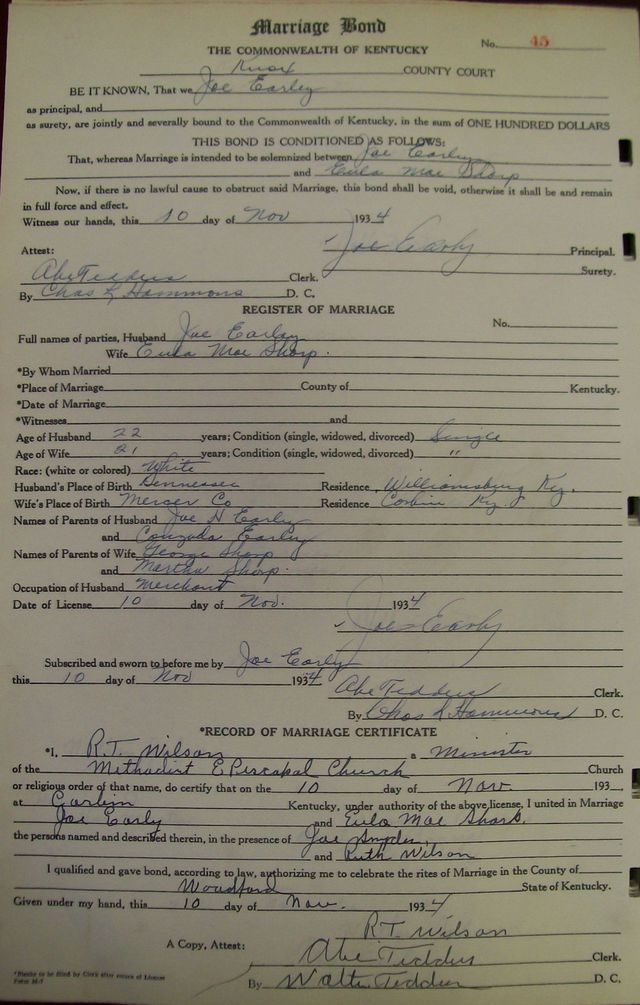 Marriage Bond
No. 45
THE COMMONWEALTH OF KENTUCKY
Knox COUNTY COURT
BE IT KNOWN, That we Joe Earley
as principal, and
as surety, are jointly and severally bound to the Commonwealth of Kentucky, in the sum of ONE HUNDRED DOLLARS
THIS BOND IS CONDITIONED AS FOLLOWS:
That, whereas Marriage is intended to be solemnized between Joe Earley
and Eula Mae Sharp
Now, if there is no lawful cause to obstruct said Marriage, this bond shall be void, otherwise it shall be and remain
in full force and effect.
Witness our hands, this 10 day of Nov 1934
Joe Early Principal.
Attest:
Surety.
Abe Tedders Clerk.
By Chas L Hammons D. C.
REGISTER OF MARRIAGE
No.
Full names of parties, Husband Joe Earley
Wife Eula Mae Sharp.
*By Whom Married
*Place of Marriage County of Kentucky.
*Date of Marriage
*Witnesses and
Age of Husband 22 years; Condition (single, widowed, divorced) Single
Age of Wife 21 years; Condition (single, widowed, divorced) "
Race: (white or colored) White
Husband's Place of Birth Tennessee Residence Williamsburg Ky.
Wife's Place of Birth Mercer Co Residence Corbin Ky.
Names of Parents of Husband Joe H Earley
and Earley
Names of Parents of Wife George Sharp
and Martha Sharp.
Occupation of Husband Merchant
Date of License 10 day of Nov. 1934
Joe Early
Subscribed and sworn to before me by Joe Early
this 10 day of Nov 1934
Abe Tedders Clerk.
By Chas L Hammons D. C.
*RECORD OF MARRIAGE CERTIFICATE
*I, R.T. Wilson a Minister
of the Methodist Episcapal Church Church
or religious order of that name, do certify that on the 10 day of Nov. 193
at Corbin Kentucky, under authority of the above license, I united in Marriage
Joe Early and Eula Mae Sharp.
the persons named and described therein, in the presence of Joe Snyder
and Ruth Wilson
I qualified and gave bond, according to law, authorizing me to celebrate the rites of Marriage in the County of
Woodford State of Kentucky.
Given under my hand, this 10 day of Nov. 1934
R.T. Wilson
A Copy, Attest: Abe Tedders Clerk.
By Walter Tedders D. C.
*Blanks to be filed by Clerk after return of License
Form M-7